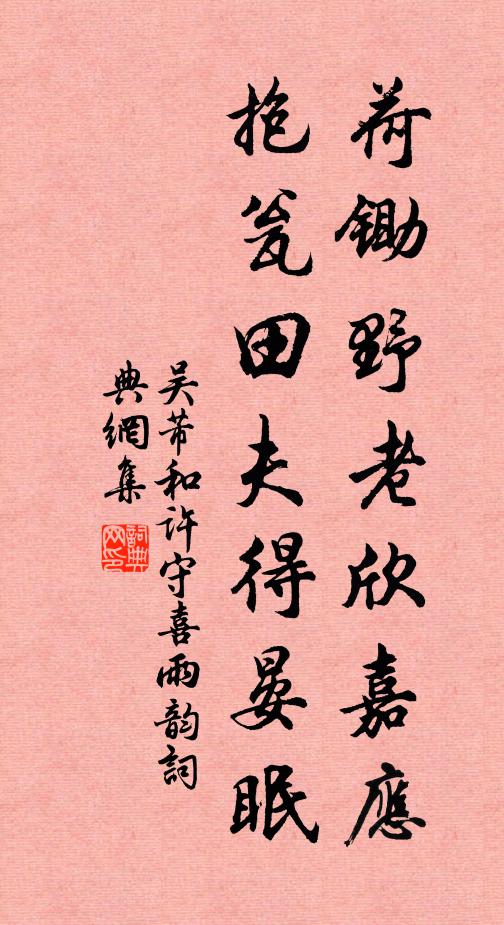 荷鋤野老欣嘉應
抱瓮田夫得晏眠
吴芾和許守喜雨韵詞
典網集
詞典網印